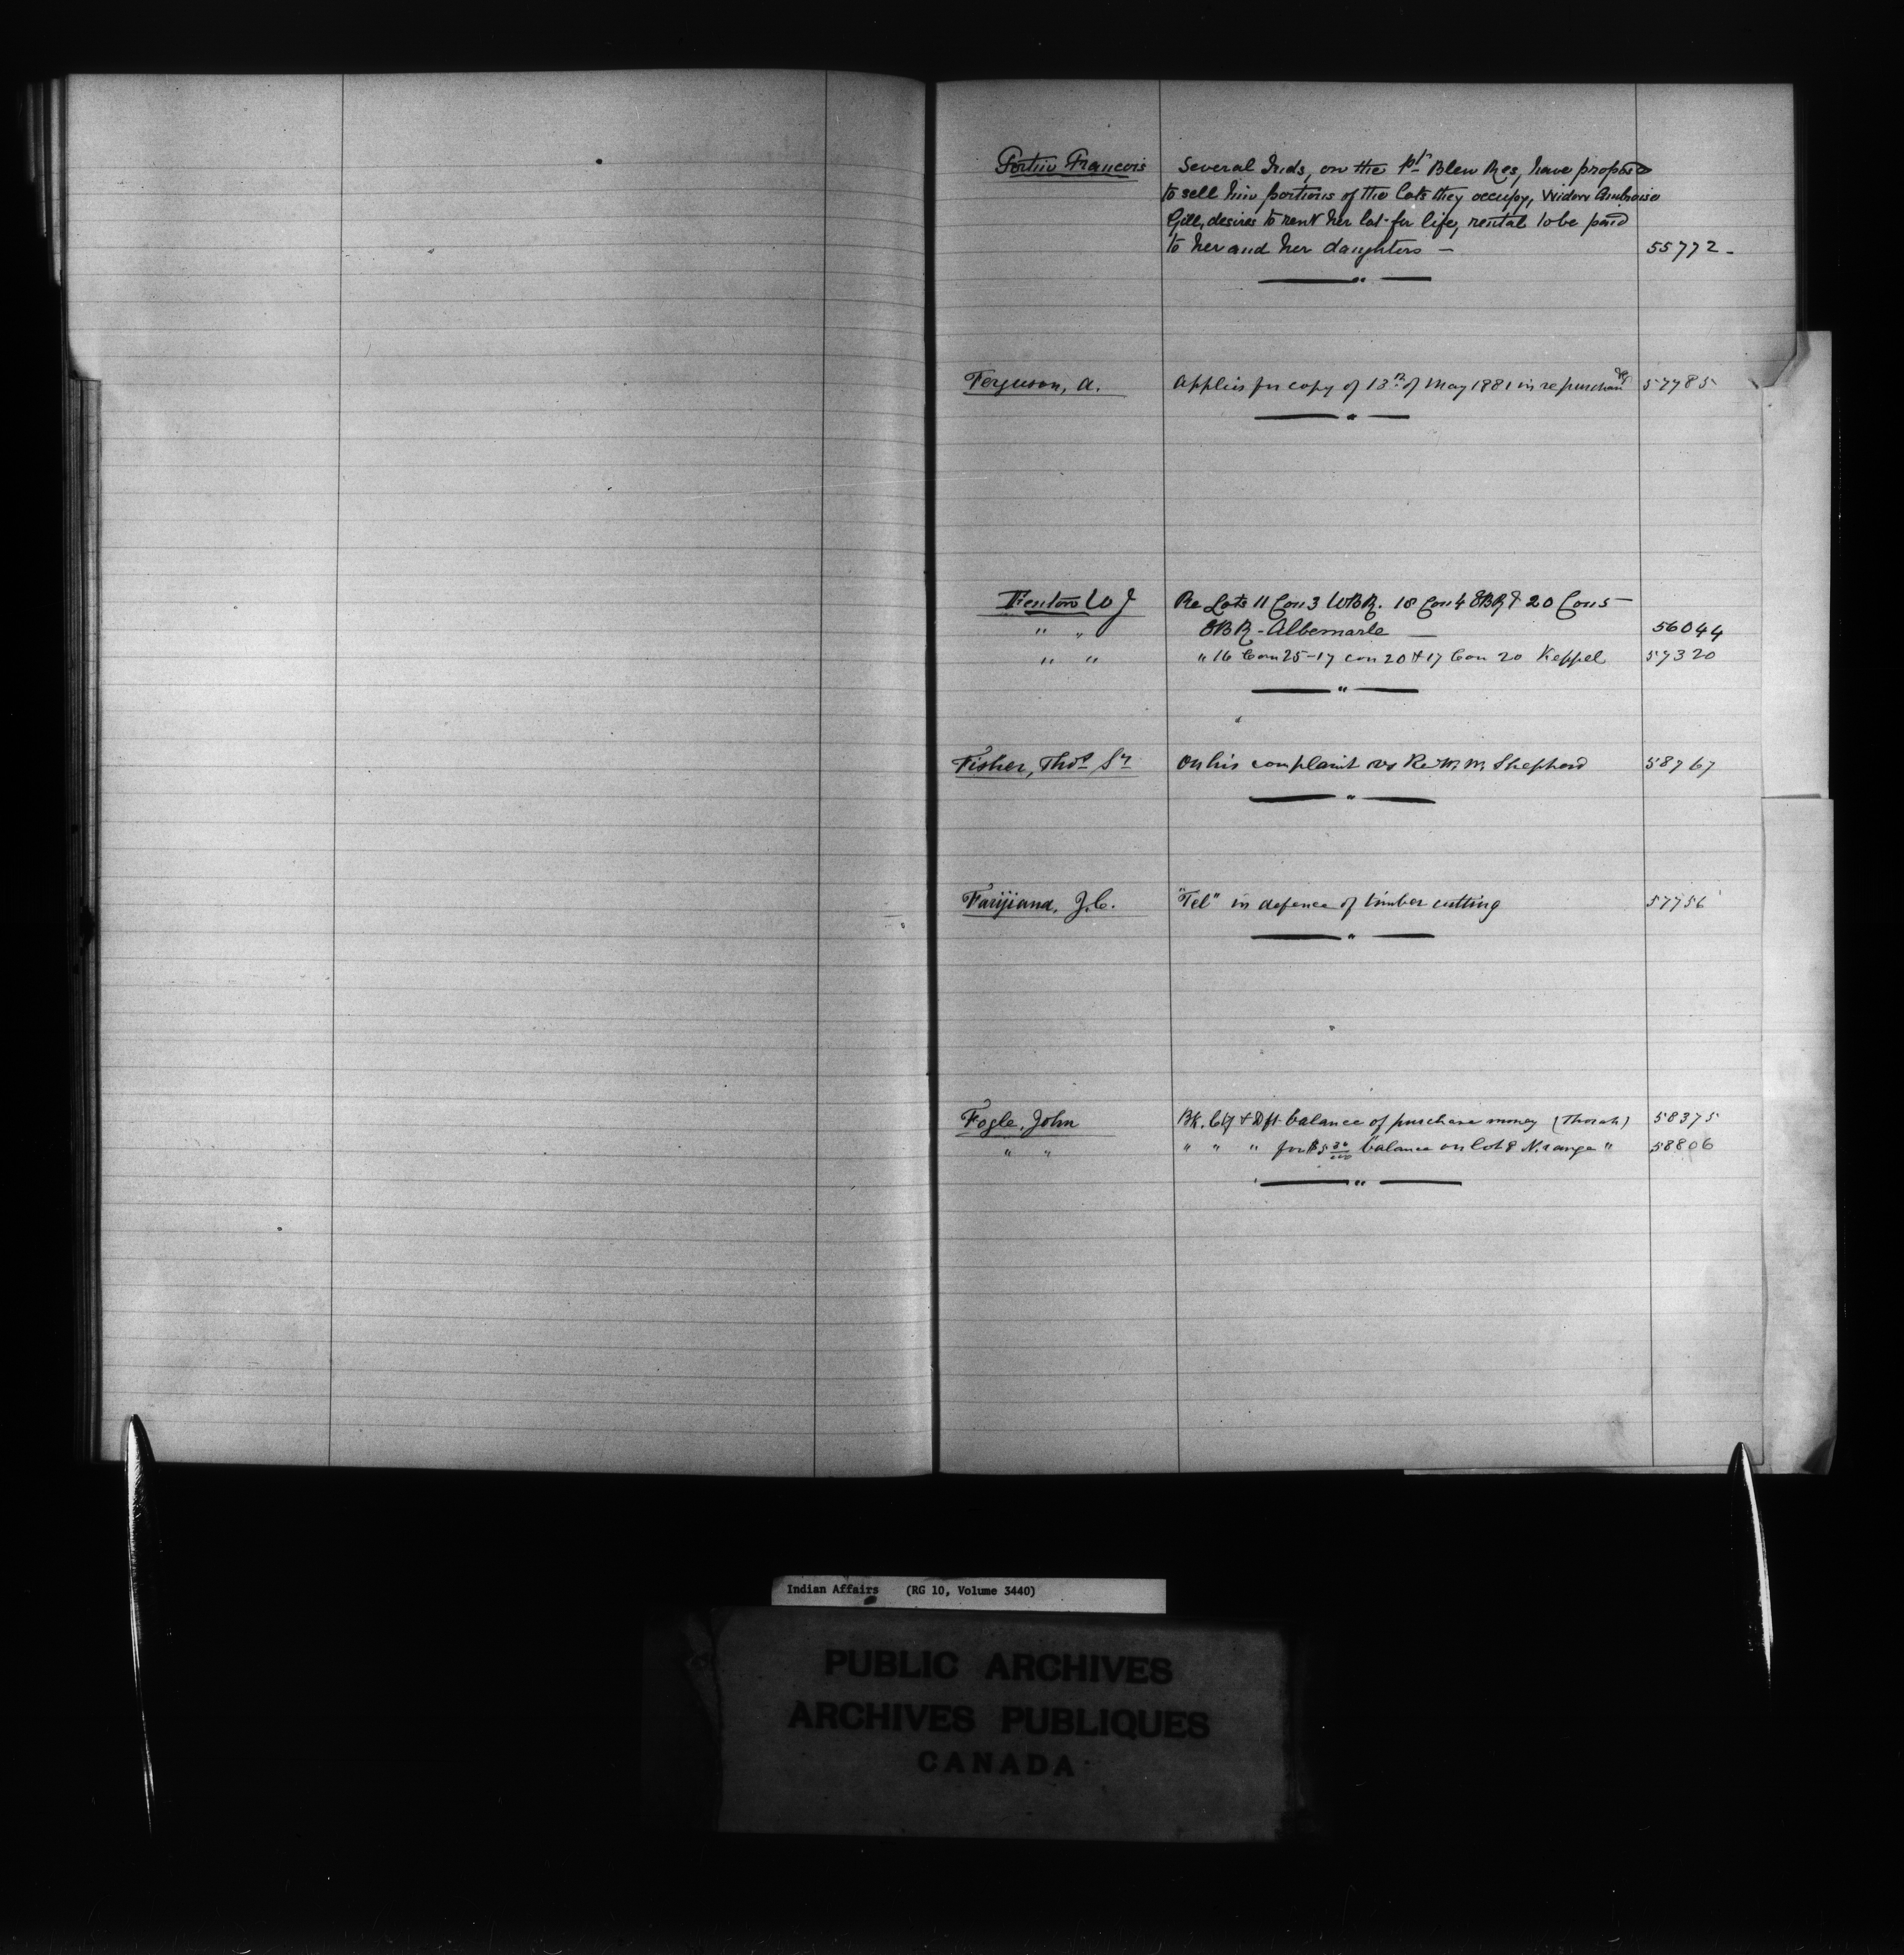 Fortier Francois Several Inds, on the Pt. Bleu Res, have proposed
to sell him portions of the lots they occupy, Widow Ambroise
Gill, desires to rent her lot for life, rental to be paid
to her and her daughters — 55772 -
Ferguson, A. Applies for copy of 13th of May 1881 in re purchase 57785
Fenton W J Re Lots 11 Con 3 WBR. 18 Con 4 EBR & 20 Con 5 —
" " EBR - Albemarle — 56044
" " " 16 Con 25 - 17 con 20 & 17 Con 20 Keppel 57320
Fisher, Thos Sr On his complaint vs Rev. M. Shepherd 58767
J.C. "Tel" in defence of timber cutting 57756
Fogle, John Bk. Ctf & Dft balance of purchase money (Thorah) 58375
" " " " " for $5 30/100 balance on lot 8 N. range " 58806
Indian Affairs (RG 10, Volume 3440)
PUBLIC ARCHIVES
ARCHIVES PUBLIQUES
CANADA